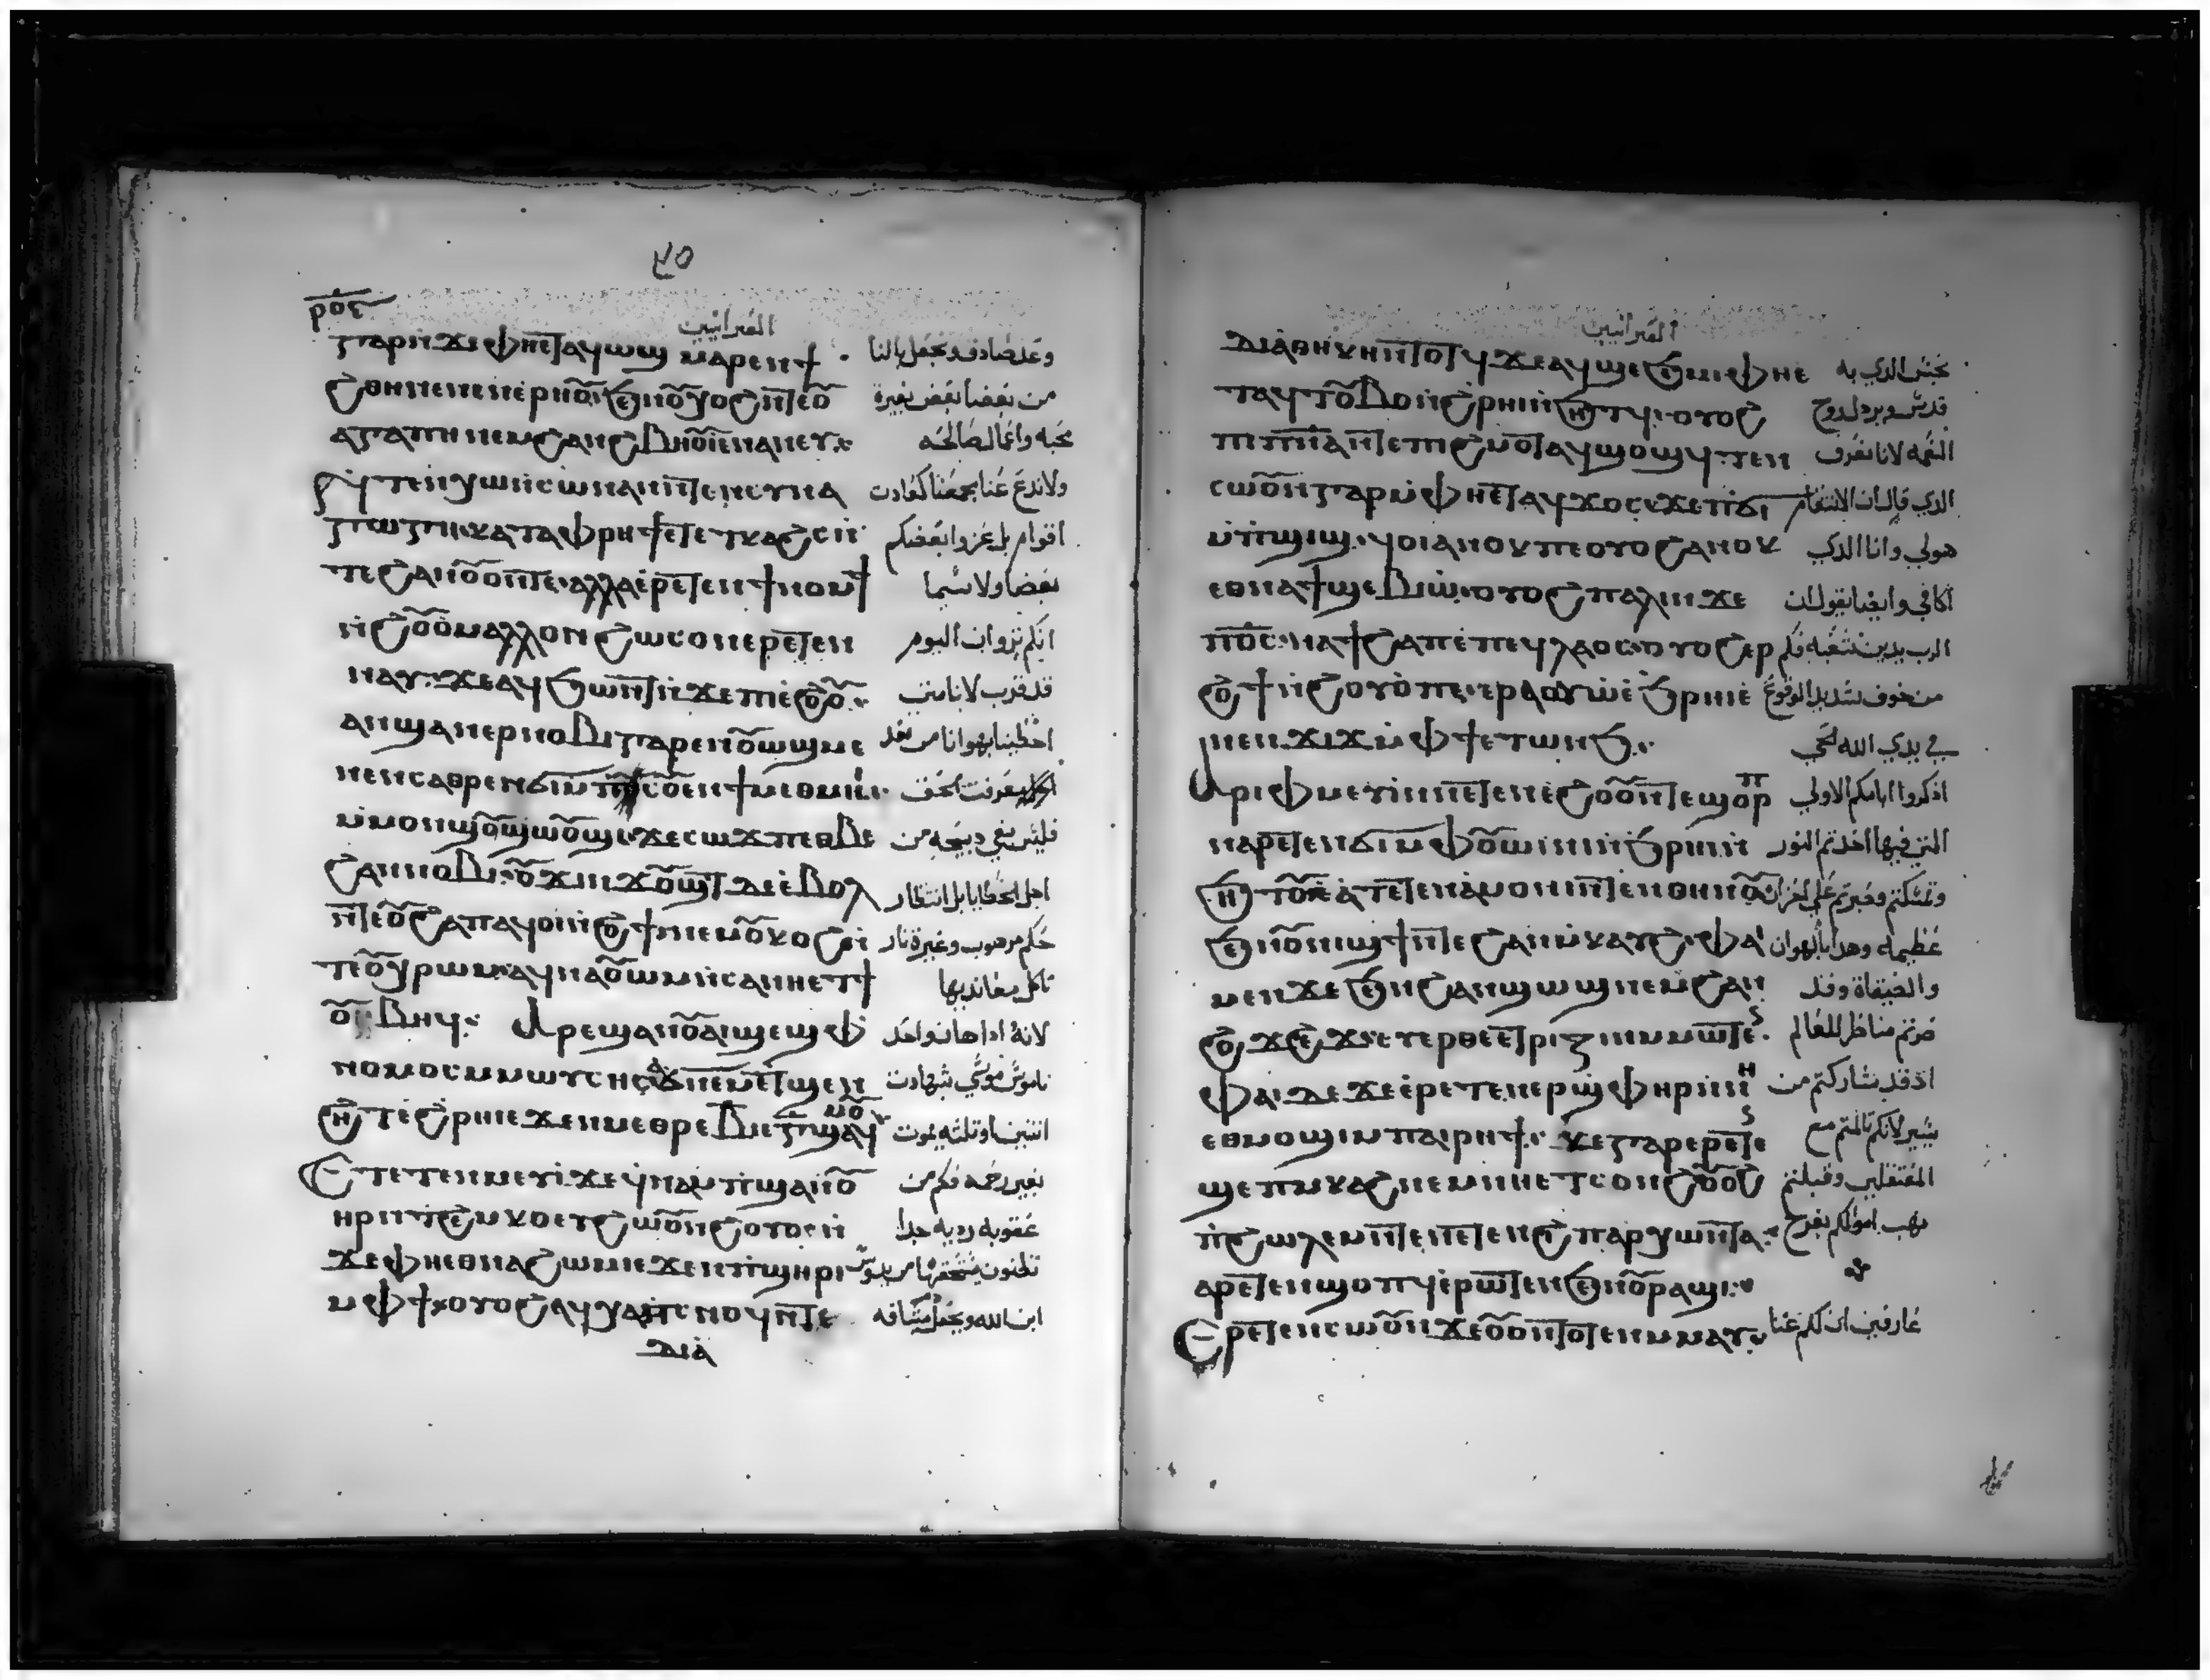 ⲣⲟⲋ
العبرانيين
ⲅⲁⲣ ⲛϫⲉ ⲫⲏⲉⲧⲁϥⲱϣ ⲙⲁⲣⲉⲛϯ وعد صادف ونجعل بالنا
ϩⲑⲏⲛ ⲉⲛⲉⲛⲉⲣⲏⲟⲩ ϧⲉⲛ ⲟⲩⲭⲟϩ ⲛⲧⲉ ⲟⲩ من بعضنا بعض بغيرة
ⲁⲅⲁⲡⲏ ⲛⲉⲙ ϩⲁⲛϩⲃⲏⲟⲩⲓ ⲉⲛⲁⲛⲉⲩ محبه واعمال صالحه
ⲛⲧⲉⲛⲭⲱ ⲛⲥⲱⲛ ⲁⲛ ⲛⲧⲉⲛⲥⲩⲛⲁ ولا ندع عنا مجمعنا كعادت
ⲅⲱⲅⲏ ⲕⲁⲧⲁ ⲫⲣⲏϯ ⲉⲧⲉ ⲧⲕⲁϩⲥ ⲛ اقوام بل عزوا بعضكم
ⲧⲉ ϩⲁⲛⲟⲩⲟⲛ ⲧⲉ ⲁⲗⲗⲁ ⲉⲣⲉⲧⲉⲛϯⲛⲟⲙϯ بعضا ولا سيما
ⲛϩⲟⲩⲟ ⲙⲁⲗⲗⲟⲛ ϩⲱⲥⲟⲛ ⲉⲣⲉⲧⲉⲛ انكم تروا ان اليوم
ⲛⲁⲩ ϫⲉ ⲁϥϧⲱⲛⲧ ⲛϫⲉ ⲡⲓⲉϩⲟⲟⲩ قد قرب لاننا متى
ⲁⲛϣⲁⲛⲉⲣⲛⲟⲃⲓ ⲅⲁⲣ ϧⲉⲛ ⲟⲩⲱϣ ⲙⲉ اخطينا بهوانا من بعد
ⲛⲉⲛⲥⲁ ⲑⲣⲉⲛϭⲓ ⲙⲡⲥⲟⲩⲉⲛ ϯⲙⲉⲑⲙⲏⲓ معرفت الحق
ⲙⲙⲟⲛ ϣⲟⲩϣⲱⲟⲩϣⲓ ϫⲉ ⲥⲱϫⲡ ⲉⲑⲃⲉ فليس بقي دبيحه من
ϩⲁⲛⲛⲟⲃⲓ ⲟⲩϫⲓⲛϫⲟⲩϣⲧ ⲇⲉ ⲉⲃⲟⲗ اجل الخطايا بل انتظار
ⲛⲧⲉ ⲟⲩϩⲁⲡ ⲁϥⲟⲓ ⲛϩⲟϯ ⲛⲉⲙ ⲟⲩⲭⲟϩ حكم مرهوب وغيرة نار
ⲧⲉ ⲟⲩⲭⲣⲱⲙ ⲁϥⲛⲁⲟⲩⲱⲙ ⲛⲥⲁ ⲛⲏⲉⲧϯ تاكل معانديها
ⲟⲩⲃⲏϥ ⲁⲣⲉϣⲁⲛ ⲟⲩⲁⲓ ϣⲉϣϥ لانه اذا اهان واحد
ⲛⲟⲙⲟⲥ ⲙⲙⲱⲩⲥⲏⲥ ϣⲉⲛ ناموس موسي شهادت
ⲉϩⲣⲏⲓ ϫⲉⲛ ⲙⲉⲑⲣⲉ ⲃ ⲓⲉ ⲅ ϣⲁϥⲙⲟⲩ اتنين او تلته يموت
ⲉⲧⲉⲧⲉⲛⲙⲉⲩⲓ ϫⲉ ϥⲛⲁⲙⲡϣⲁ ⲛⲟⲩ بغير رحمه فكم من
ⲏⲣ ⲛϩⲉⲙⲕⲟ ⲉⲩϩⲱⲟⲩ ⲛϩⲟⲩⲟ ⲛ عقوبه رديه جدا
ϫⲉ ⲫⲏⲉⲑⲛⲁϩⲱⲙⲓ ϫⲉⲛ ⲡϣⲏⲣⲓ تظنون يستحقها من يدوس
ⲙⲫϯ ⲟⲩⲟϩ ⲁϥⲭⲁ ⲡⲥⲛⲟϥ ⲛⲧⲉ ابن الله ويجعل ميتاقه
ⲇⲓⲁ
العبرانيين
ⲇⲓⲁⲑⲏⲕⲏ ⲛⲧⲟⲧϥ ϫⲉ ⲁϥϭⲱϧⲉⲙ ⲫⲏⲉ نجس الدي به
ⲧⲁϥⲧⲟⲩⲃⲟ ⲛϩⲣⲏⲓ ⲛϧⲏⲧϥ ⲟⲩⲟϩ قدس وبرد لروح
ⲡⲓⲡⲛⲁ ⲛⲧⲉ ⲡⲓϩⲙⲟⲧ ⲁϥϣⲟϣϥ ⲧⲉⲛ النعمه لاننا نعرف
ⲥⲱⲟⲩⲛ ⲅⲁⲣ ⲙⲫⲏⲉⲧⲁϥϫⲟⲥ ϫⲉ ⲡϭⲓ الدي قال ان الانتقام
ⲙⲡϣⲓϣ ⲫⲱⲓ ⲁⲛⲟⲕ ⲡⲉ ⲟⲩⲟϩ ⲁⲛⲟⲕ هو لي وانا الدي
ⲉⲑⲛⲁϯϣⲉⲃⲓⲱ ⲟⲩⲟϩ ⲡⲁⲗⲓⲛ ϫⲉ اكافي وايضا يقول ان
ⲡⲟⲥ ⲛⲁϯϩⲁⲡ ⲉⲡⲉϥⲗⲁⲟⲥ ⲟⲩⲟϩ ⲉⲣ الرب يدين شعبه فكم
ϩⲟϯ ⲛϩⲟⲩⲟ ⲡⲉ ⲉϩⲣⲏⲓ ⲉ من خوف شديد الوقوع
ⲛⲉⲛϫⲓϫ ⲙⲫϯ ⲉⲧⲱⲛϧ في يدي الله الحي
ⲁⲣⲓⲫⲙⲉⲩⲓ ⲛⲛⲉⲧⲉⲛⲉϩⲟⲟⲩ ⲛⲧⲉ ϣⲟⲣⲡ اذكروا ايامكم الاولي
ⲛⲁⲣⲉⲧⲉⲛϭⲓ ⲙⲫⲟⲩⲱⲓⲛⲓ ⲛϩⲣⲏⲓ ⲛ التي فيها اخدتم النور
ϧⲏⲧⲟⲩ ⲁⲧⲉⲧⲉⲛⲁⲙⲟⲛⲓ ⲛⲧⲉⲛ ⲑⲏⲛⲟⲩ
ϧⲉⲛ ⲟⲩⲛⲓϣϯ ⲛⲧⲉ ϩⲁⲛⲙⲕⲁⲩϩ ⲫⲁⲓ عظيمه وهدا بالهوان
ⲙⲉⲛ ϫⲉ ϧⲉⲛ ϩⲁⲛϣⲱϣ ⲛⲉⲙ ϩⲁⲛ والضيقاة وقد
ϩⲟϫϩⲉϫ ⲉⲩⲉⲣⲑⲉⲁⲧⲣⲓⲍⲓⲛ ⲙⲙⲱⲧⲉⲛ صرتم مناظر للعالم
ⲫⲁⲓ ⲇⲉ ϫⲉ ⲉⲣⲉⲧⲉⲛⲉⲣϣⲫⲏⲣ ⲛⲛⲏ اذ قد شاركتم من
ⲉⲑⲙⲟϣⲓ ⲙⲡⲁⲓⲣⲏϯ ⲕⲉ ⲅⲁⲣ ⲉⲣⲉⲧⲉⲛ يسير لانكم تالمتم مع
ϣⲉⲡⲙⲕⲁϩ ⲛⲉⲙ ⲛⲏⲉⲧⲥⲟⲛϩ ⲟⲩⲟϩ المعتقلين وقبلتم
ⲡϩⲱⲗⲉⲙ ⲛⲧⲉ ⲛⲉⲧⲉⲛϩⲩⲡⲁⲣⲭⲱⲛⲧⲁ نهب اموالكم بفرح
ⲁⲣⲉⲧⲉⲛϣⲟⲡϥ ⲉⲣⲱⲧⲉⲛ ϧⲉⲛ ⲟⲩⲣⲁϣⲓ
ⲉⲣⲉⲧⲉⲛⲥⲱⲟⲩⲛ ϫⲉ ⲟⲩⲟⲛⲧⲱⲧⲉⲛ ⲙⲙⲁⲩ عارفين ان لكم غنا